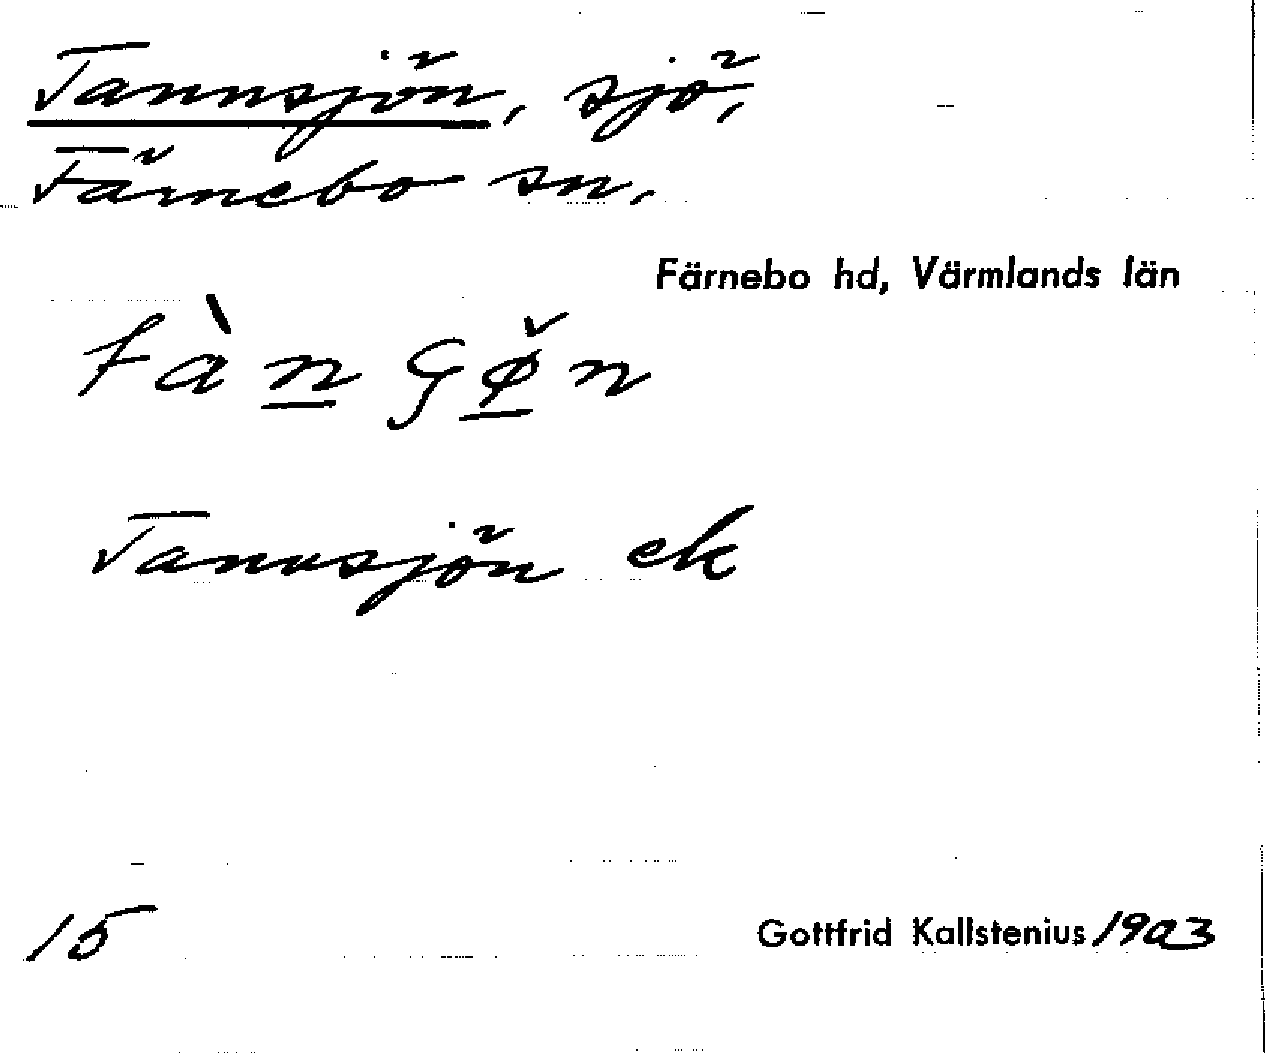 Tannsjön, sjö,
Färnebo sn,
Färnebo hd, Värmlands län
tàn ʂø̌n
Tannsjön ek
15
Gottfrid Kallstenius 1903